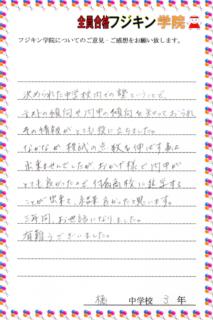 全員合格フジキン学院
フジキン学院についてのご意見・ご感想をお願い致します。
決められた中学校内での塾ということで、
テストの傾向や内申の傾向を知っておられ
その情報がとても役に立ちました。
なかなか 模試の点数を伸ばす事は
出来ませんでしたが、おかげ様で内申が
とても良かったので 高校に進学する
ことが出来て、結果良かったと思います。
三年間、お世話になりました。
有難うございました。
中学校 3 年